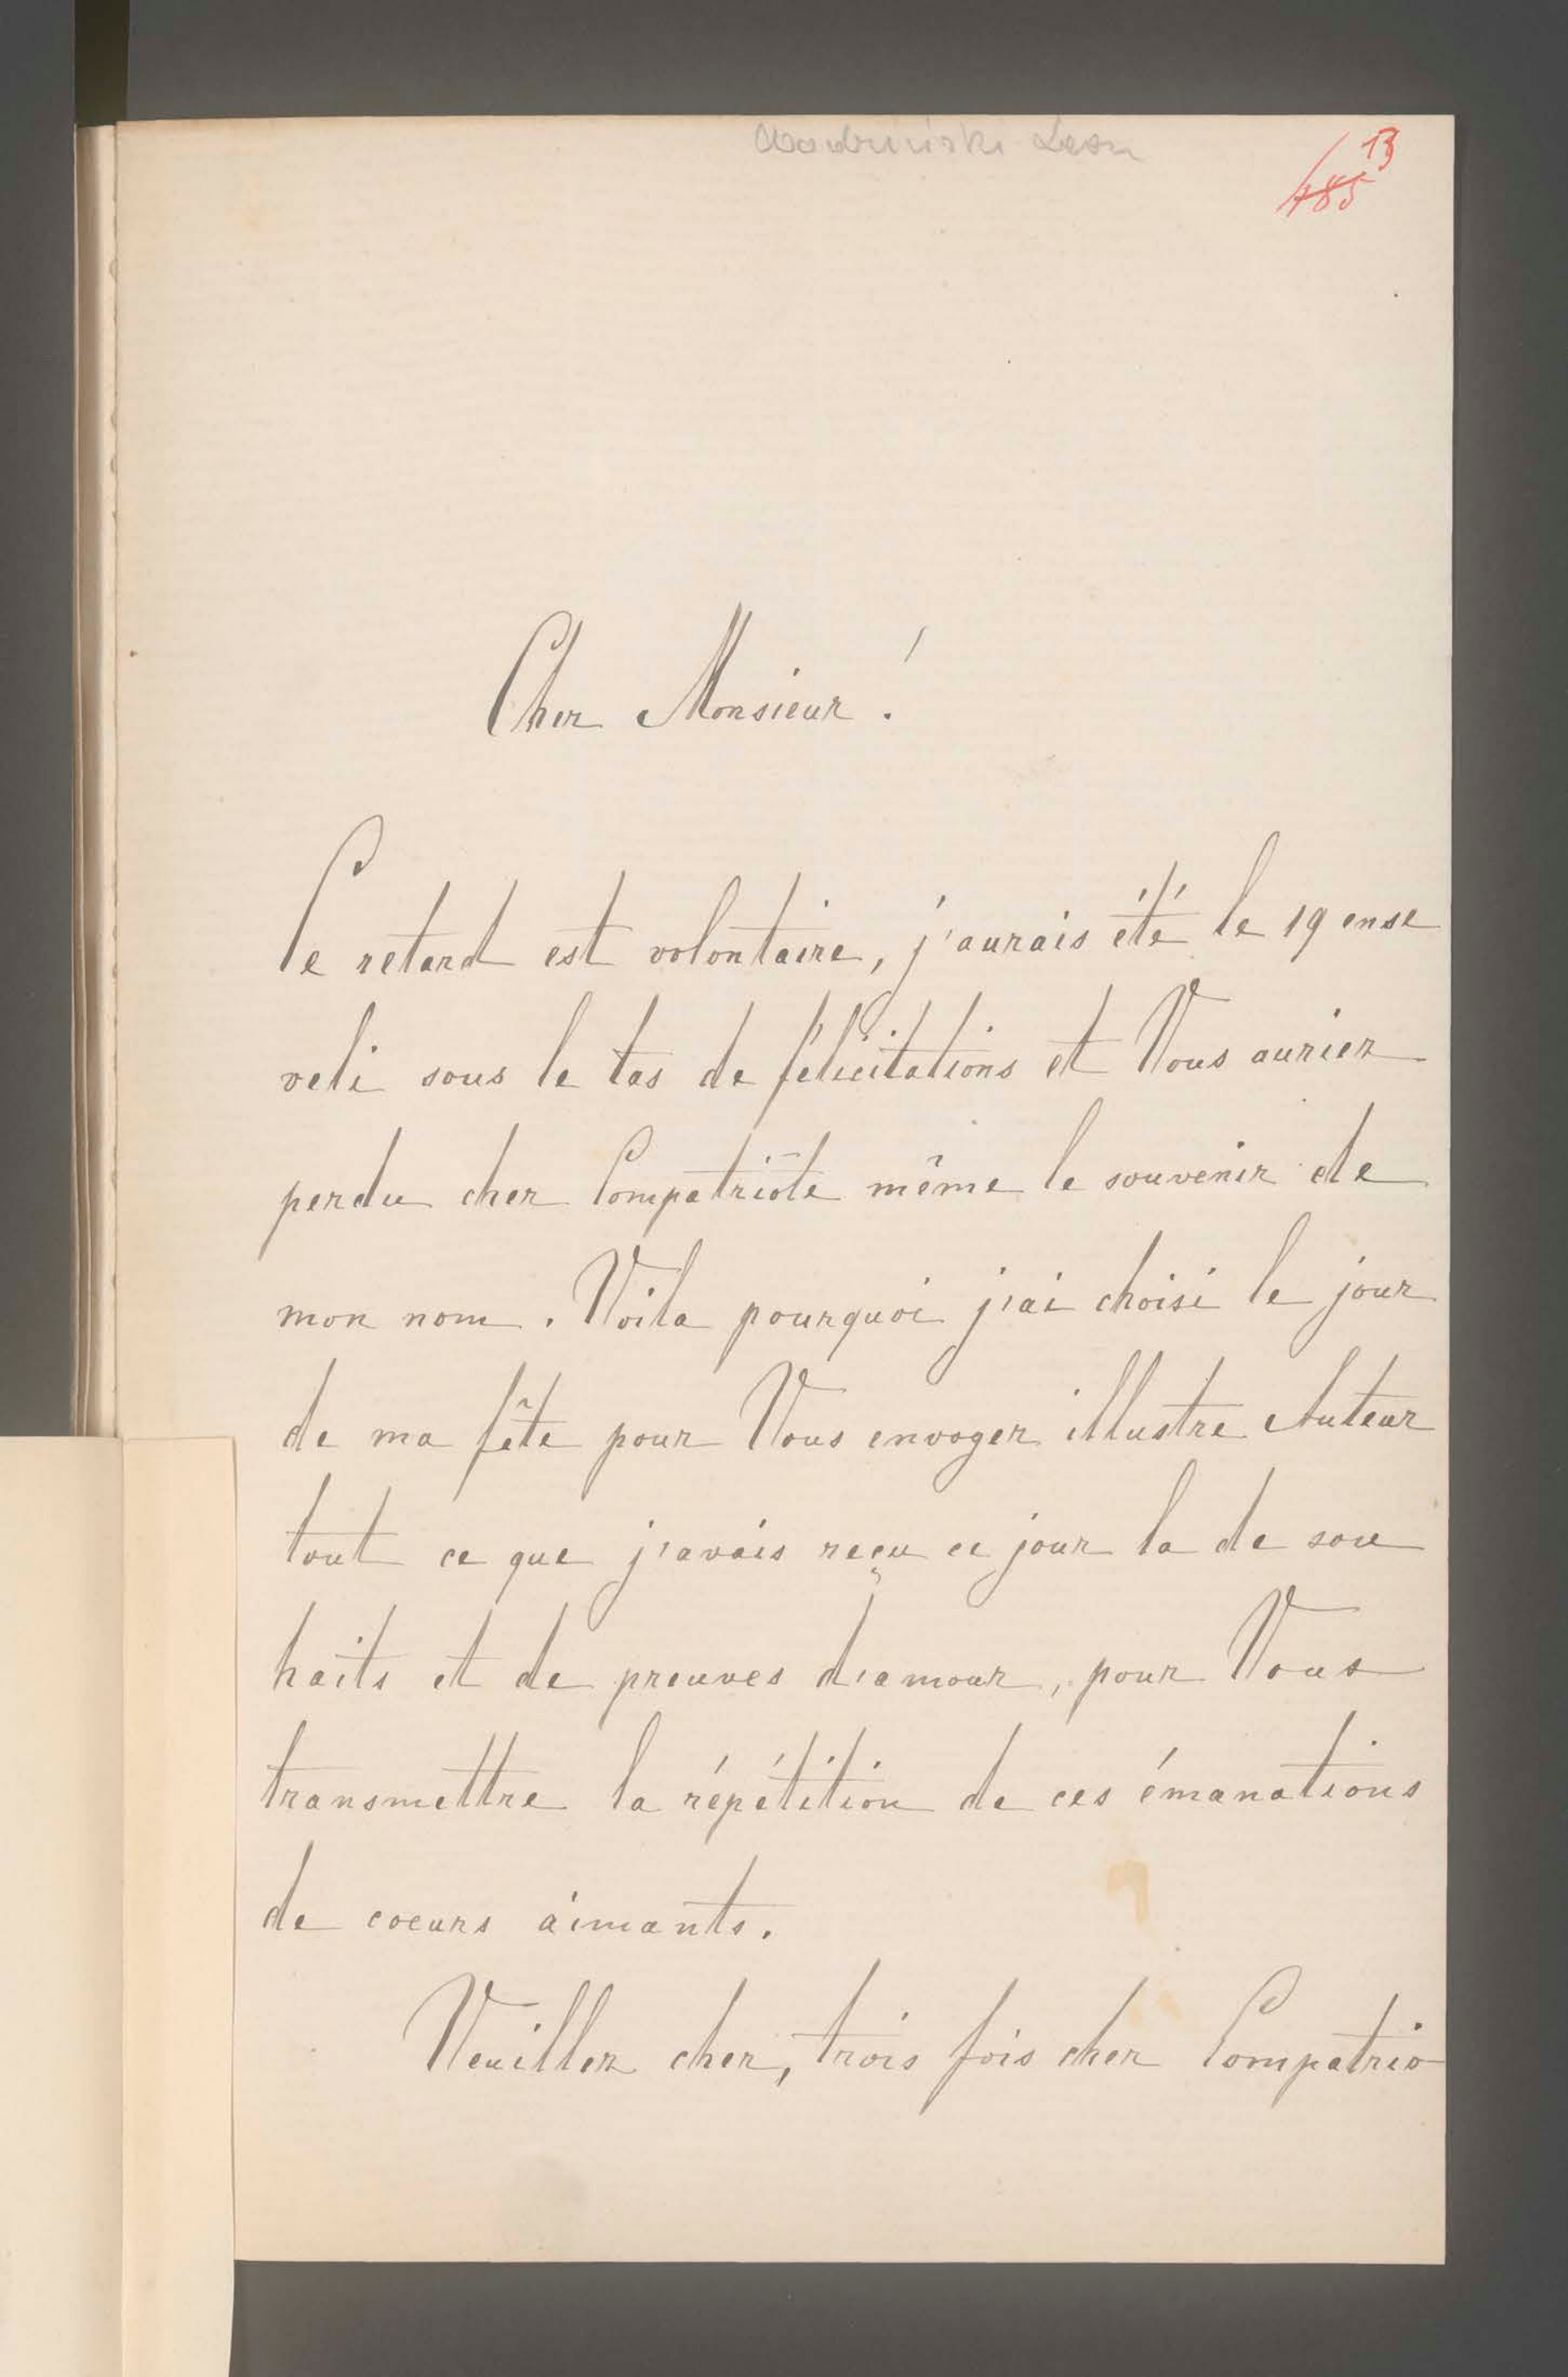 13
485
Cher Monsieur!
Ce retard est volontaire, j'aurais été le 19 ense
veli sous le tas de félicitations et Vous auriez
perdu cher Compatriote même le souvenir de
mon nom. Voila pourquoi j'ai choisi le jour
de ma fête pour Vous envoyer illustre Auteur
tout ce que j'avais reçu ce jour la de sou
haits et de preuves d'amour, pour Vous
transmettre la répétition de ces émanations
de coeurs aimants.
Veuillez cher, trois fois cher Compatrio